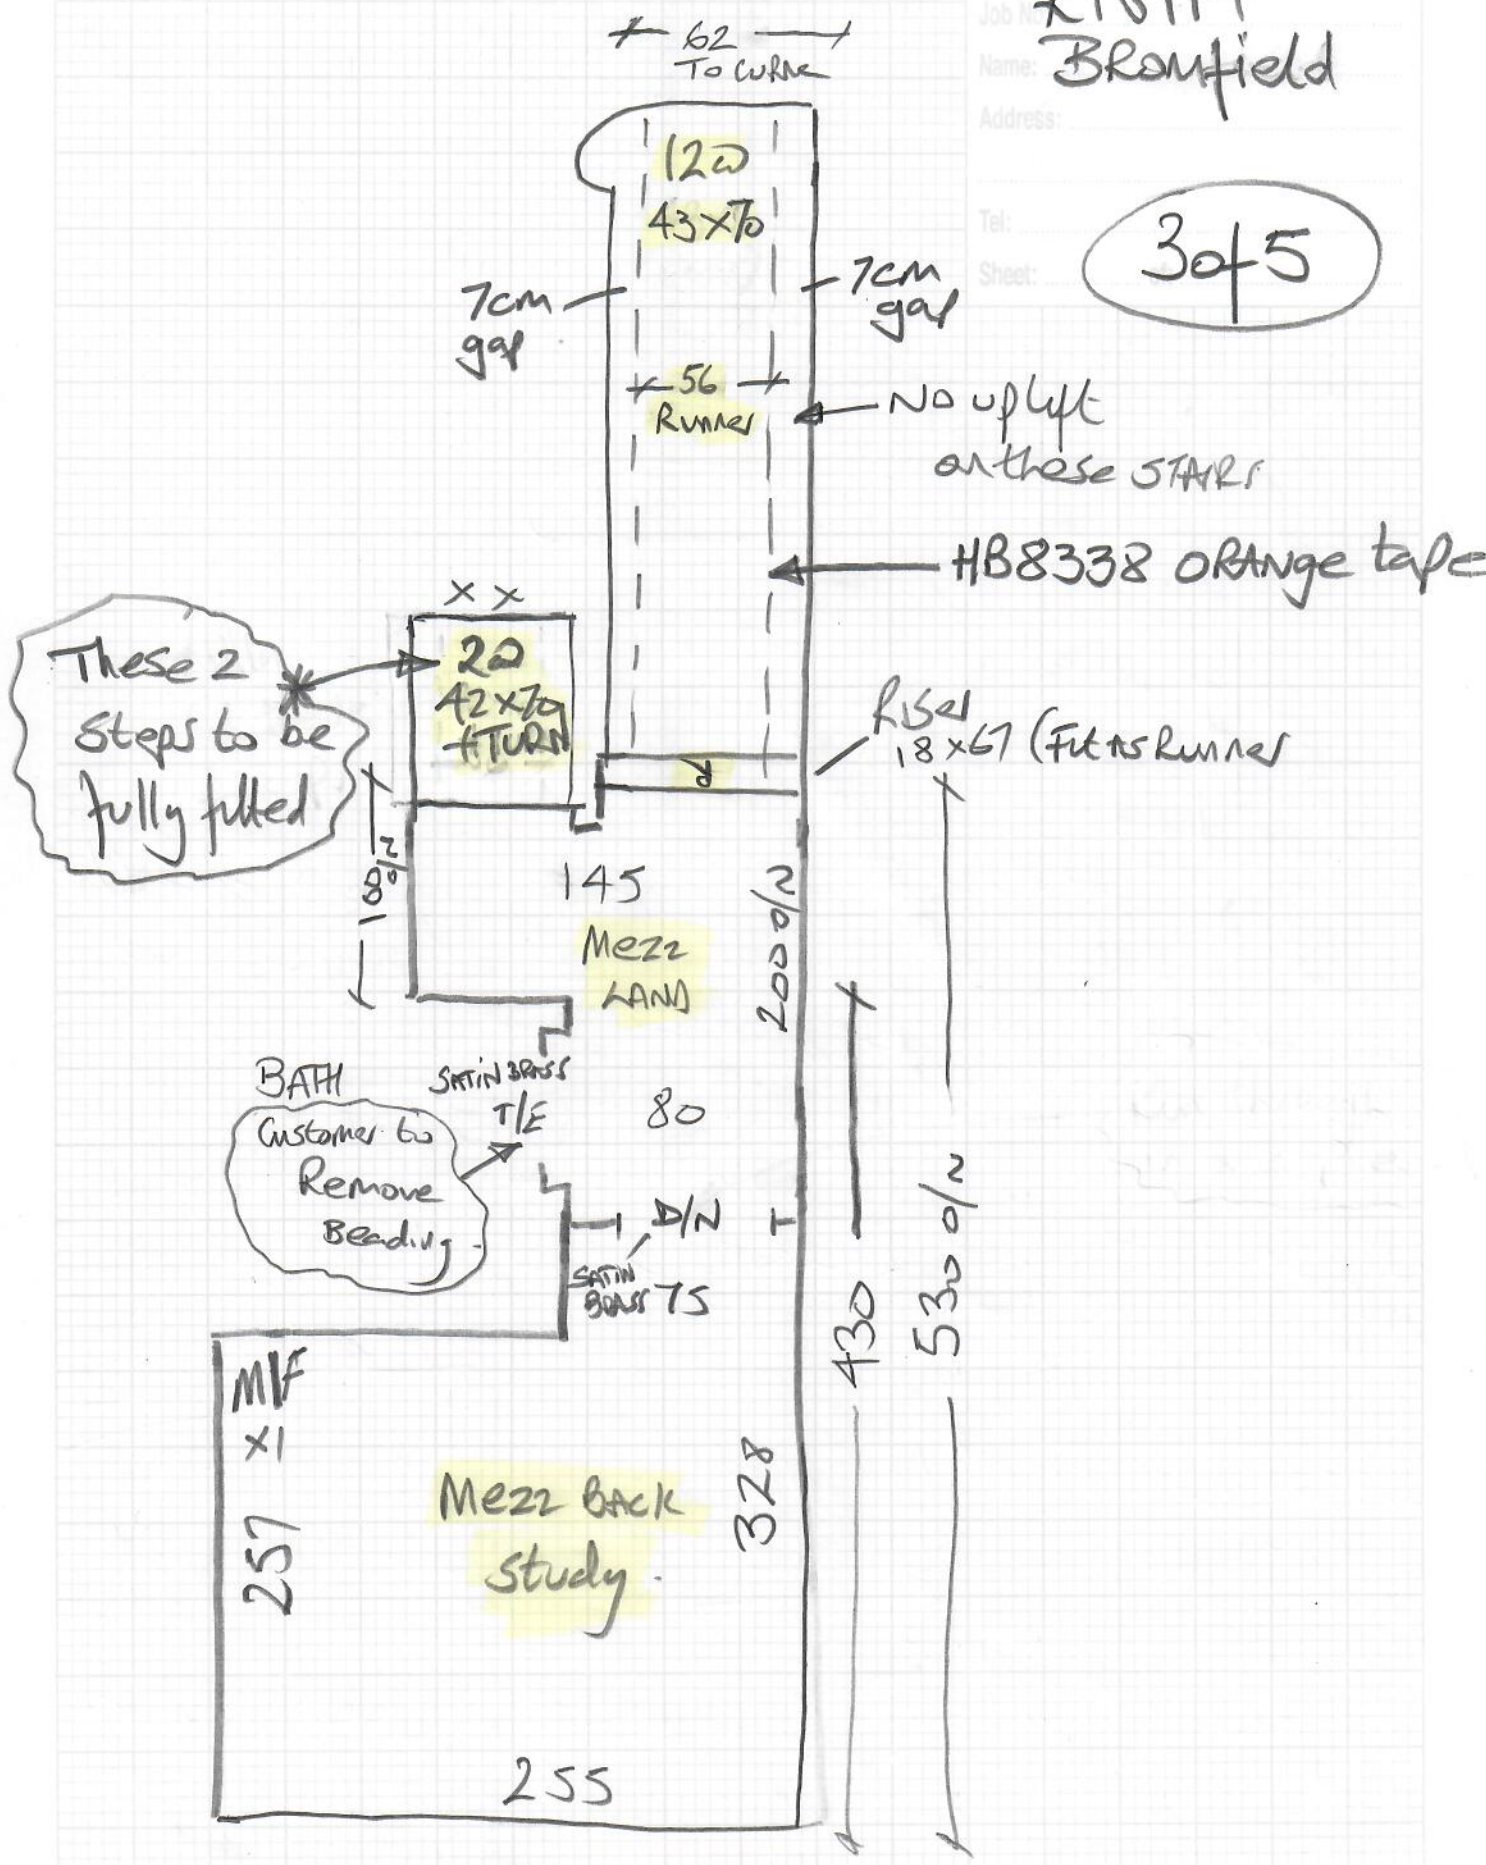 Job No
Name: BRomfield
Address:
Tel:
Sheet:
3 of 5
62
To CURVE
12
43x70
7cm
gap
7cm
gap
56
Runner
No uplift
on these STAIRS
HB8338 ORANGE tape
xx
These 2
steps to be
fully fitted
2
42x70
+TURN
Riser
18x67 (Fit As Runner
180/2
145
Mezz
LAND
200 0/2
BATH
Customer to
Remove
Beading
SATIN BRASS
T/E
80
D/N
SATIN
BRASS
75
430
530 0/2
M/F
x1
257
Mezz BACK
Study
328
255